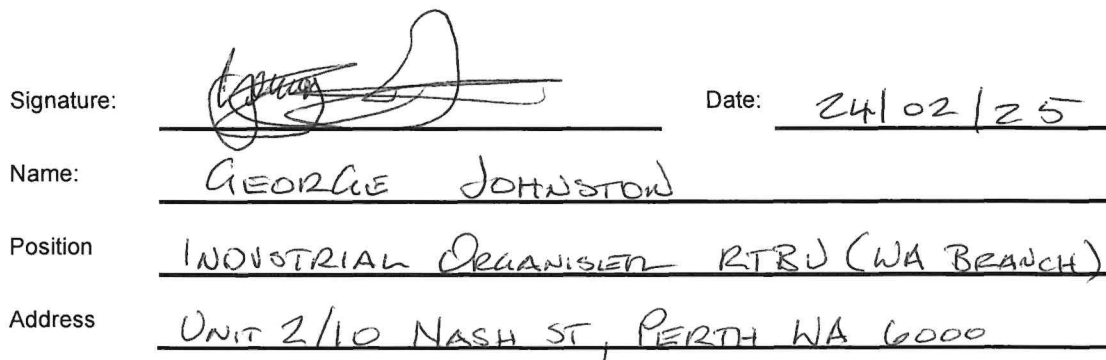 Signature: Date: 24/02/25
Name: GEORGE JOHNSTON
Position INDUSTRIAL ORGANISER RTBU (WA BRANCH)
Address UNIT 2/10 NASH ST, PERTH WA 6000